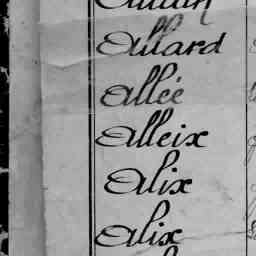 Allard
Allée
Alleix
Alix
Alix